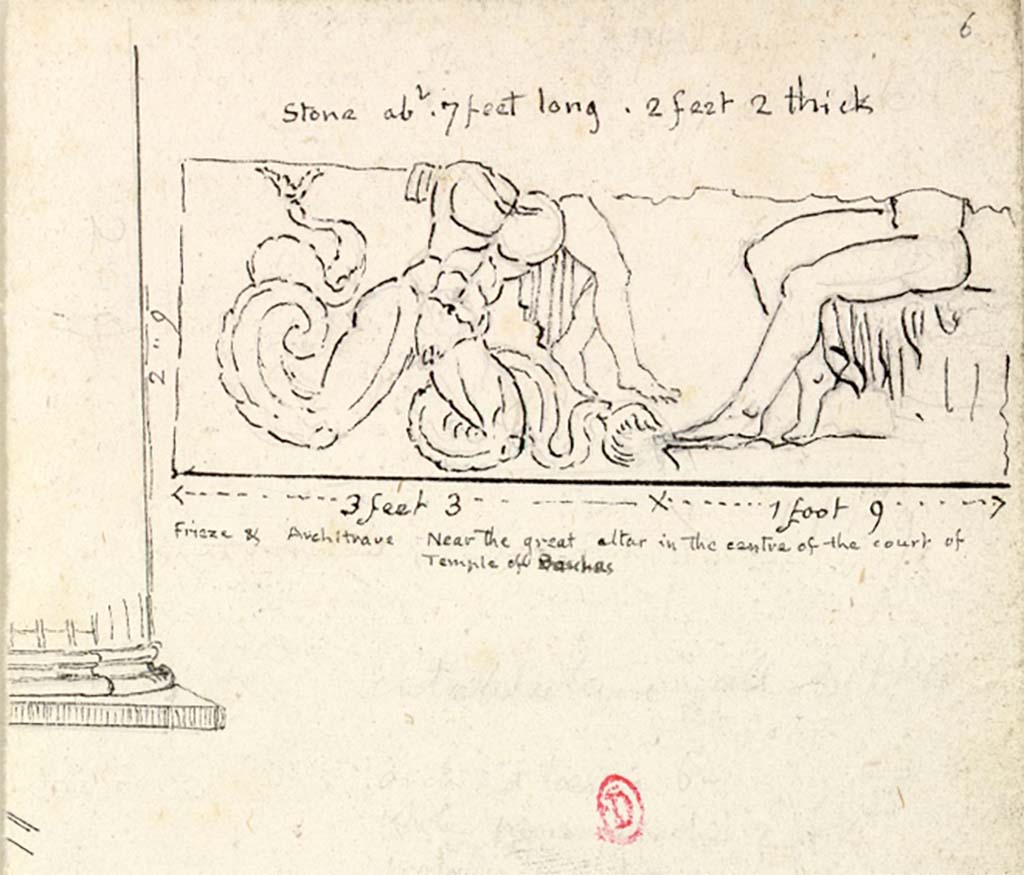 6
Stone abt. 7 feet long . 2 feet 2 thick
2 " 9
3 feet 3 x 1 foot 9
Frieze & Architrave Near the great altar in the centre of the court of
Temple of Bacchus
14
D